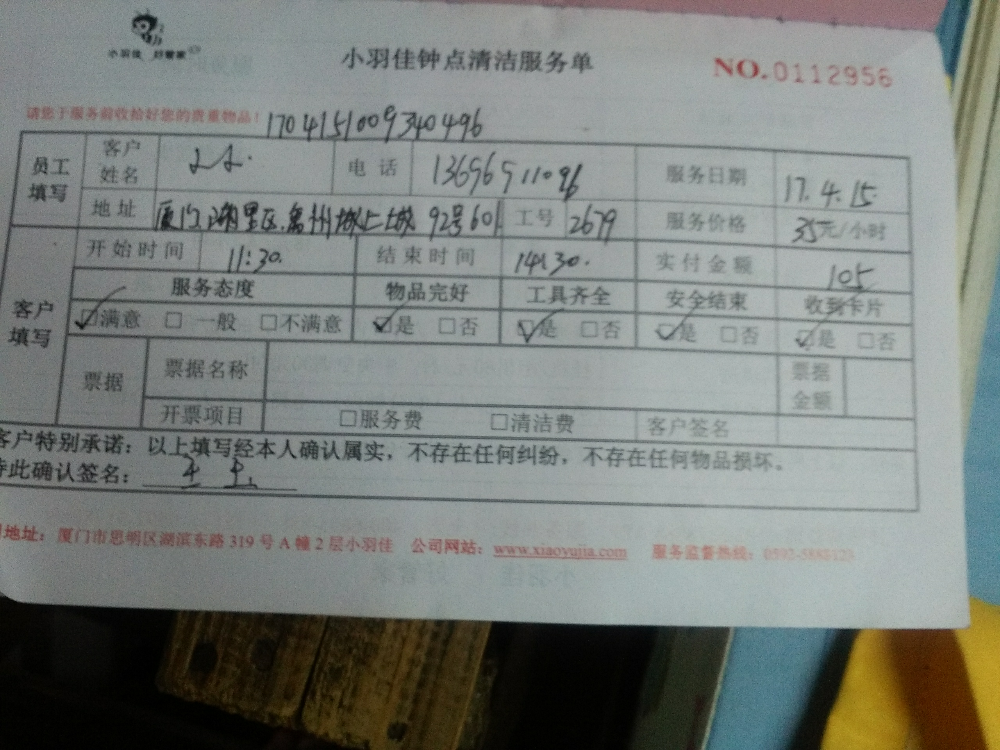 小羽佳 好管家
小羽佳钟点清洁服务单
NO.0112956
请您于服务前收拾好您的贵重物品!
1704151009340496
员工填写 客户姓名 电话 13696911096 服务日期 17.4.15.
地址 厦门湖里区.禹州城上城 92号601 工号 2679 服务价格 35元/小时
客户填写 开始时间 11:30. 结束时间 14:30. 实付金额 105
服务态度 物品完好 工具齐全 安全结束 收到卡片
☑满意 □一般 □不满意 ☑是 □否 ☑是 □否 ☑是 □否 ☑是 □否
票据 票据名称 票据金额
开票项目 □服务费 □清洁费 客户签名
客户特别承诺:以上填写经本人确认属实,不存在任何纠纷,不存在任何物品损坏。
特此确认签名:
地址:厦门市思明区湖滨东路319号A幢2层小羽佳 公司网站:www.xiaoyujia.com 服务监督热线: